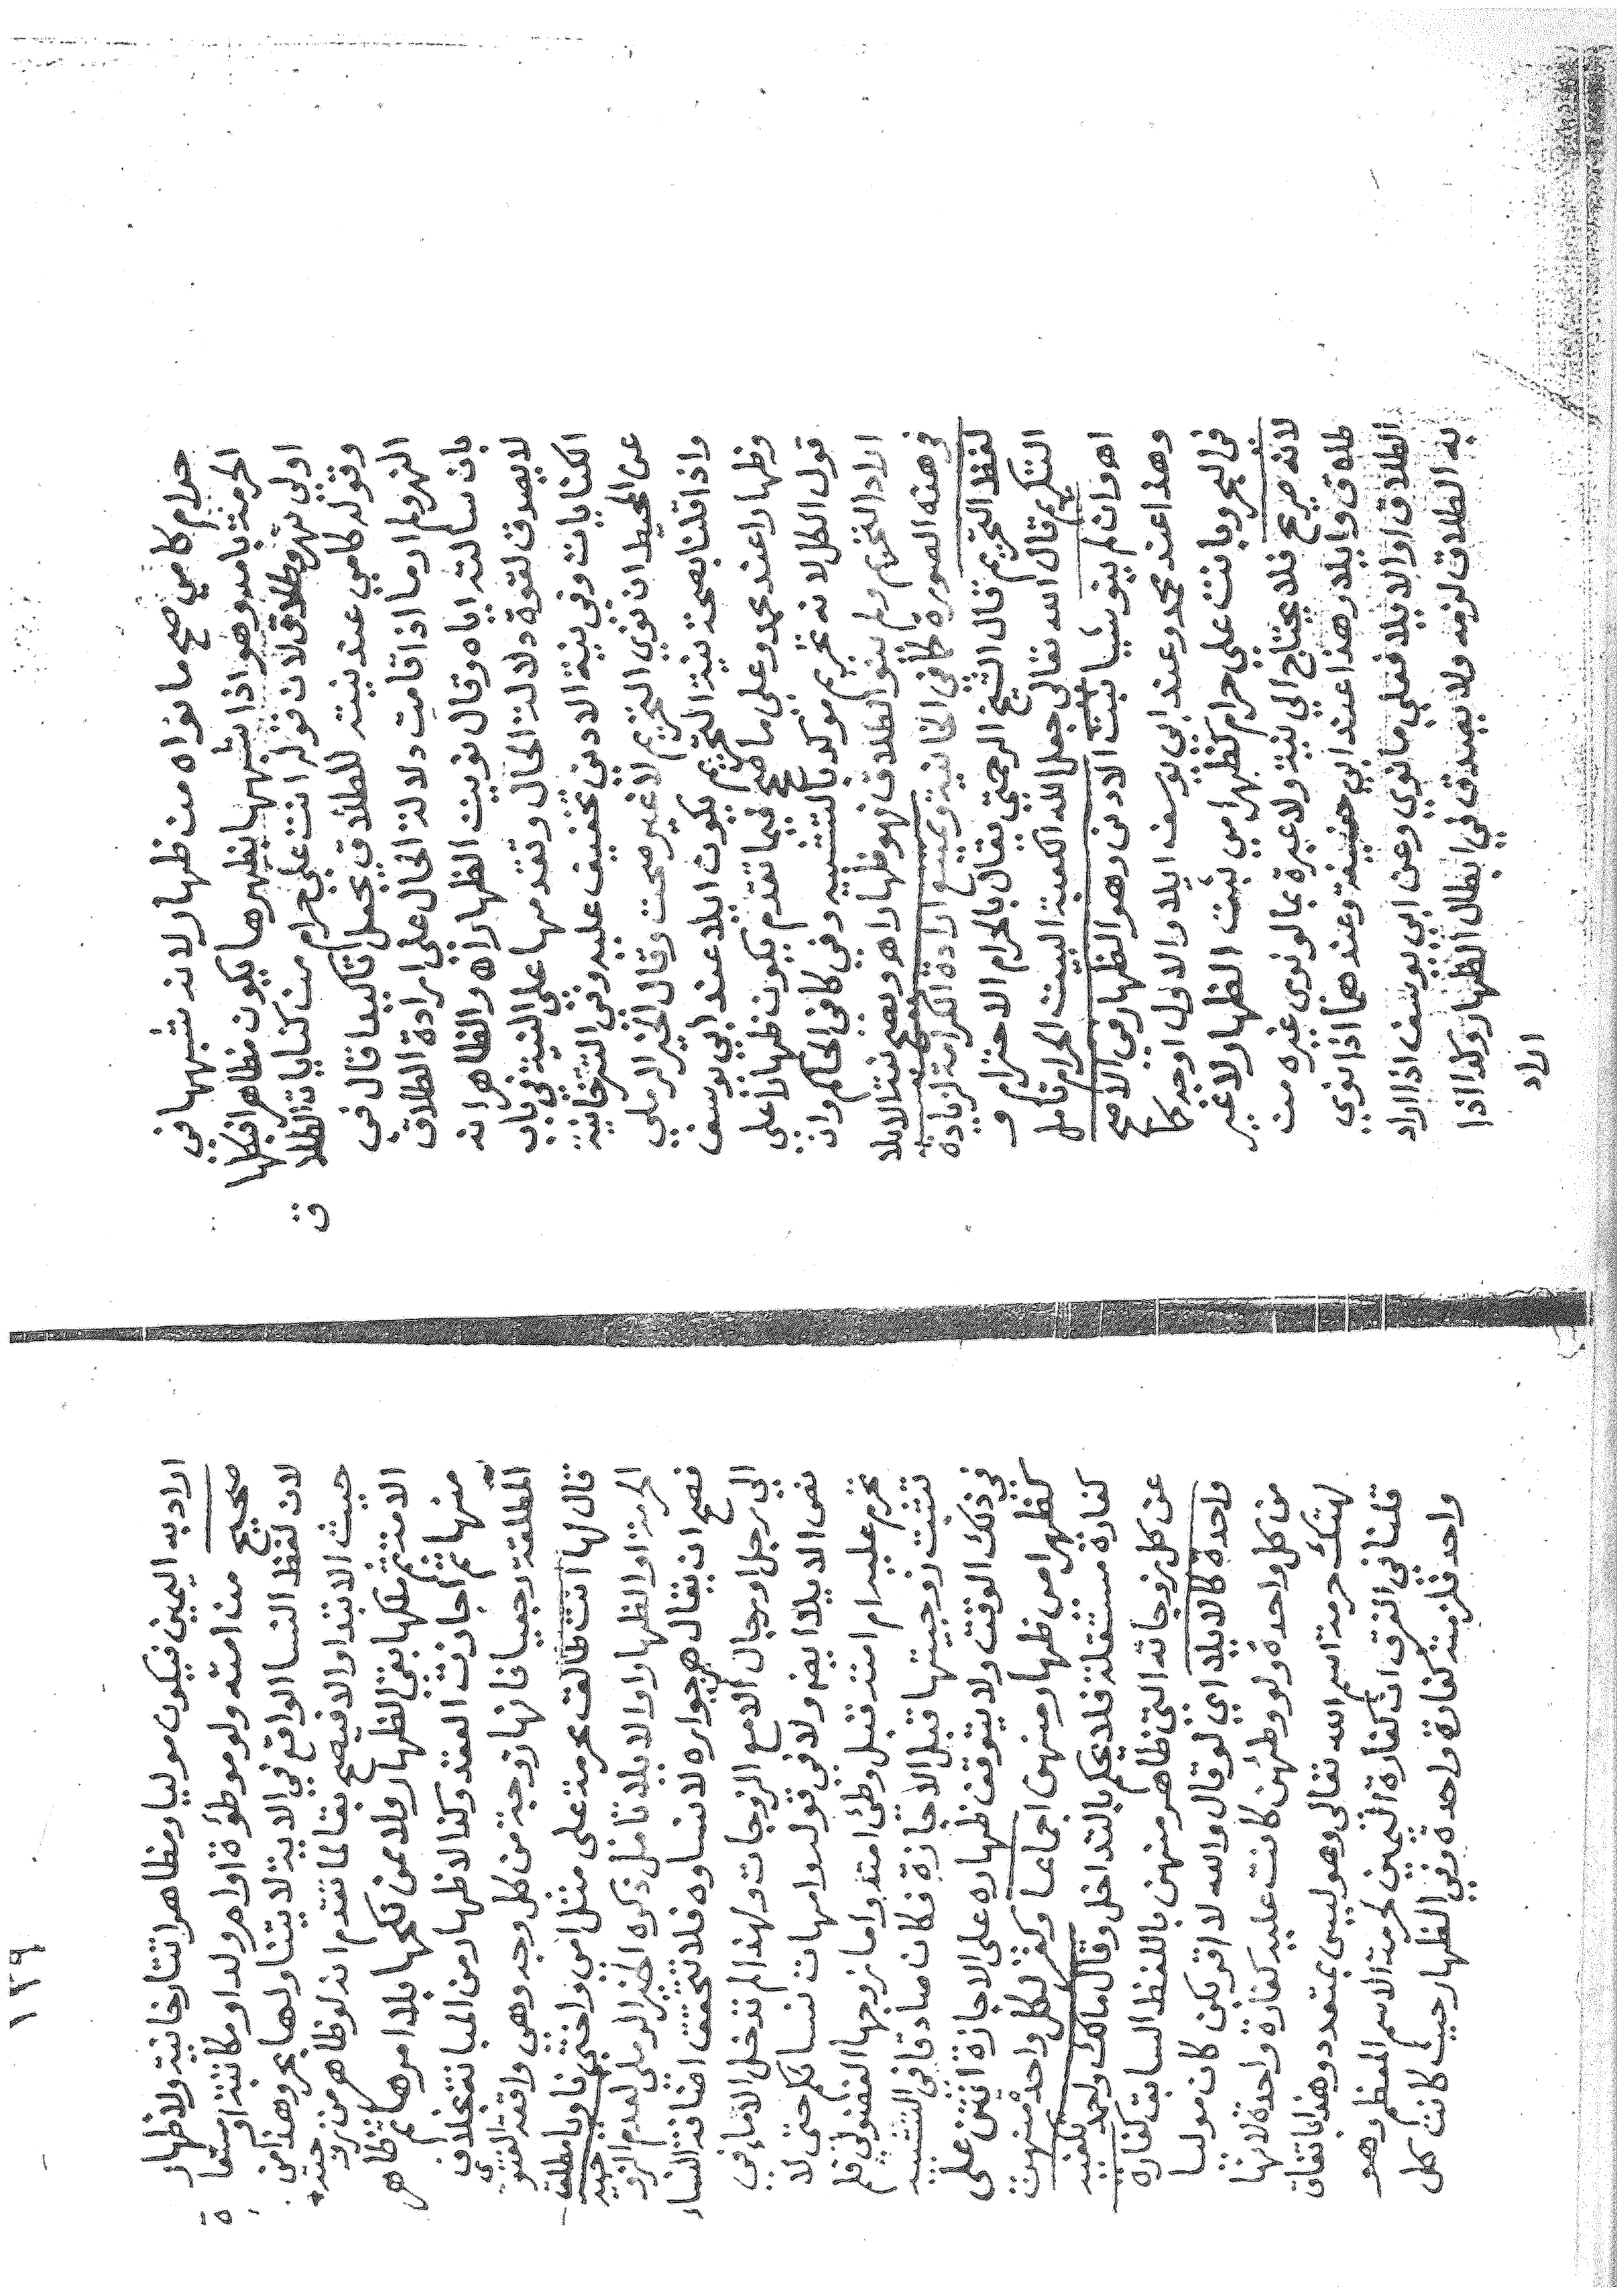 حرام كامي صح ما نواه من ظهار لانه شبهها في
الحرمة بامه وهو اذا شبهها بظهرها يكون مظاهرا فبكلها
اولى نهر وطلاق لان قوله انت علي حرام من كنايات الطلا
ق
وقوله كامي عند نيته للطلاق يجعل تاكيدا قال في
النهر ولم ار ما اذا قامت دلالة الحال على ارادة الطلاق
بان سالته اياه وقال نويت الظهار اه والظاهر انه
لا يصدق لقوة دلالة الحال وتقدمها على النية في باب
الكنايات وفي نية الادنى تخفيف عليه وفي التترخانية
عن المحيط ان نوى التحريم لا غير صحت وقال الخير الرملي
واذا قلنا بصحة نية التحريم يكون ايلا عند ابي يوسف
وظهارا عند محمد وعلى ما صح فيما تقدم يكون ظهارا على
قول الكل لانه تحريم موكد بالتشبيه وفي كافي الحاكم وان
اراد التحريم ولم ينو الطلاق فهو ظهار اه ويصح نية الايلا
في هذه الصورة كما في الخانية ويمنع ارادة الكرامة لزيادة
لفظ التحريم قال الشيخ الرحمتي يقال بالحرام الاحترام و
التكريم قال الله تعالى جعل الله الكعبة البيت الحرام تامل
اه وان لم ينو شيا ثبت الادنى وهو الظهار في الاصح
وهذا عند محمد وعند ابي يوسف ايلا والاول اوجه كما
في البحر وبانت علي حرام كظهر امي ثبت الظهار لا غير
لانه صريح فلا يحتاج الى نية ولا عبرة بما لو نوى غيره من
طلاق وايلا وهذا عند ابي حنيفة وعندهما اذا نوى
الطلاق او الايلا فعلى ما نوى وعن ابي يوسف اذا اراد
به الطلاق لزمه ولا يصدق في ابطال الظهار وكذا اذا
اراد
١٢٩
اراد به اليمين فيكون موليا ومظاهرا تتارخانية ولا ظهار
صحيح من امته ولو موطؤة او ام ولد او مكاتبة او مستسعا
ة
لان لفظ النسا الواقع في الاية لا يتناولها بحر وهذا من
حيث الابتدا والا فيصح بقا لما تقدم انه لو ظاهر من زوجته
الامة ثم ملكها بقي الظهار ولا ممن نكحها بلا امرها ثم ظاهر
منها ثم اجازت العقد وكذا لا ظهار من المبانة بخلاف
المطلقة رجعيا فانها زوجة من كل وجه وهي واقعة الفتوى
قال لها انت طالق محرمة على مثل امي واختي ناويا مطلق
الحرمة او الظهار او الايلا تامل ذكره الخير الرملي لعدم الزوجية
فصح ان يقال هن جواره لا نساوه فلا تتحقق اضافة النساء
الى رجل او رجال الا مع الزوجات ولهذا لم تدخل الاماء في
نص الايلا ايضا ولا في قوله وامهات نسائكم حتى لا
تحرم عليه ام امته قبل وطئ امته واما زوجها الفضولي فلم
تثبت زوجيتها قبل الاجازة فكان صادقا في التشبيه
في ذلك الوقت ولا يتوقف ظهاره على الاجازة انتن علي
كظهر امي ظهار منهن اجماعا وكفر لكل واحدة منهن
كفارة مستقلة فلا يحكم بالتداخل وقال مالك واحمد يكفيه
عن كل زوجاته التي ظاهر منهن باللفظ السابق كفارة
واحدة كالايلا اي لو قال والله لا اقربكن كان موليا
من كل واحدة ولو وطئهن كانت عليه كفارة واحدة لانها
لهتك حرمة اسم الله تعالى وهو ليس بمتعدد وهذا باتفاق
قلنا في الفرق ان كفارة اليمين لحرمة الاسم المعظم وهو
واحد فلزمته كفارة واحدة وفي الظهار حيث كانت كل